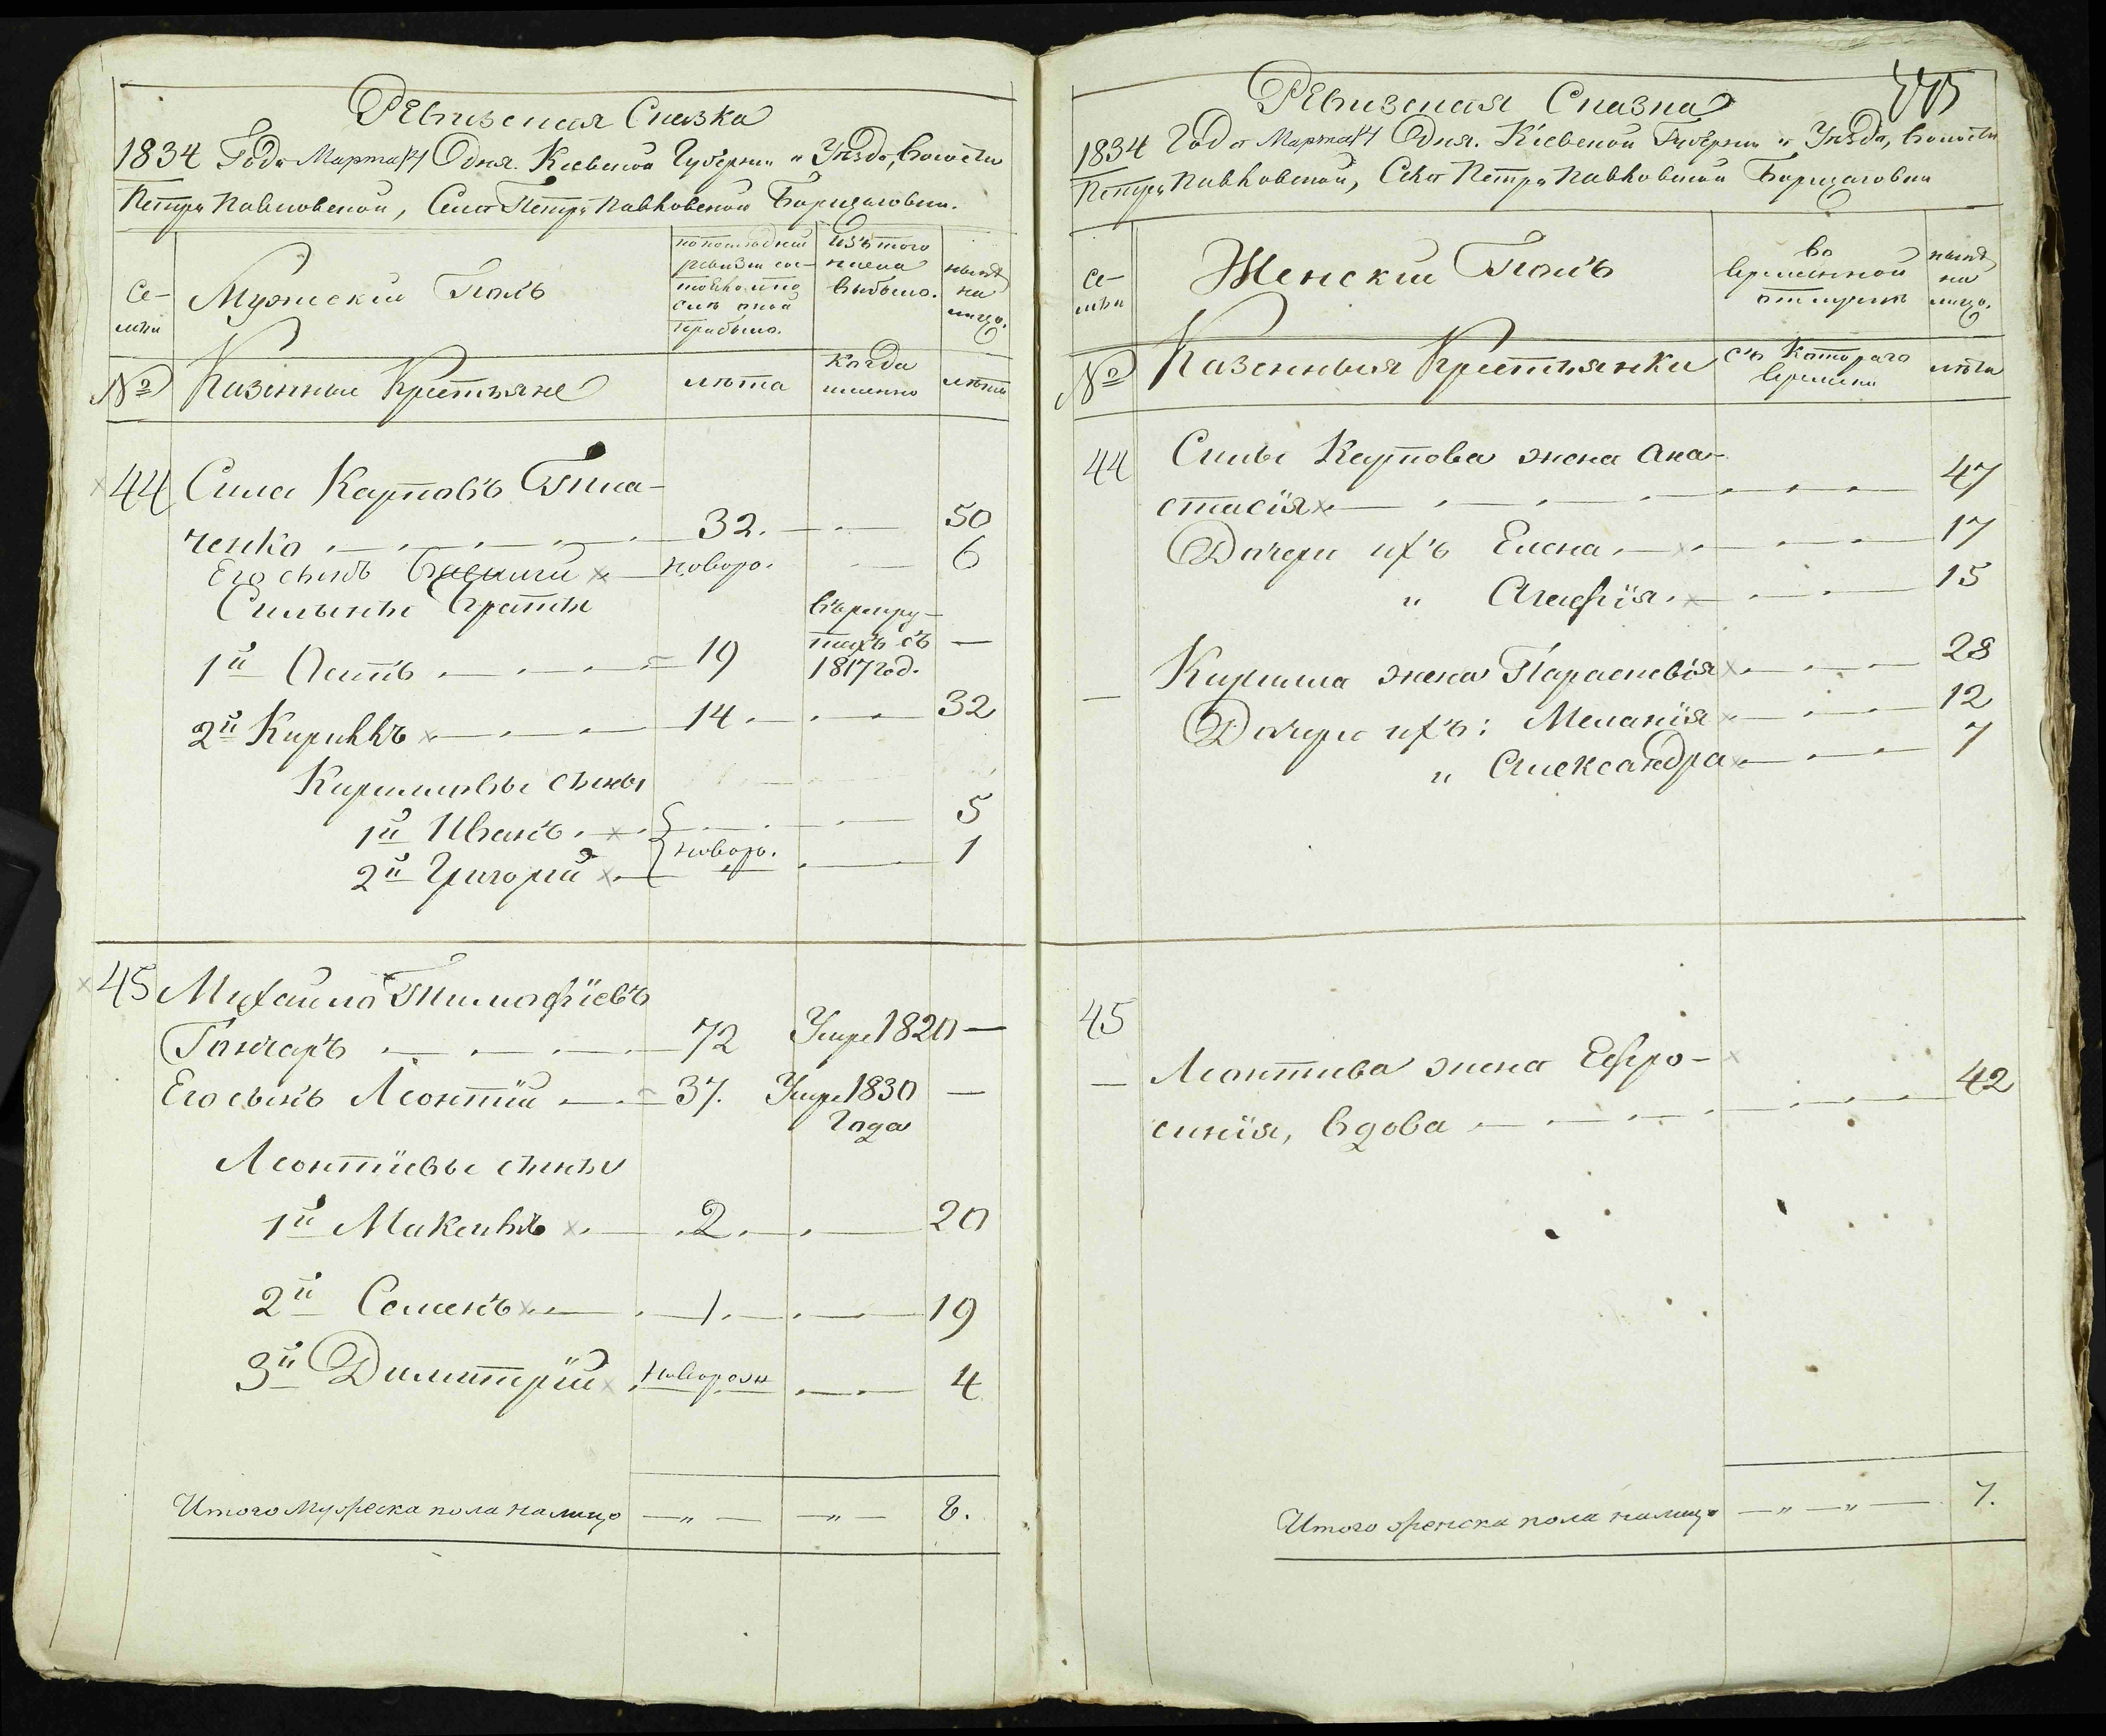 Ревизская Сказка
1834 Года Марта 14 Дня. Кіевской Губерніи и Уѣзда, Волости
Петру Павловской, Села Петру Павловской Борщаговки.
Се-
мьи
Мужеский Полъ
по последней
ревизіи сос-
тояло или
после оной
прибыло.
Изъ того
числа
выбыло.
нынѣ
на
лицо.
№
Казенные Крестьяне
лѣта
Когда
именно
лѣта
44 Сила Карповъ
ченко 32. 50
Его сынъ новоро. 6
Силыны братья
въ рекру-
1й Осипъ 19 тахъ съ —
1817 год.
2й Кирилъ 14 32
Кириловы сыны
1й Иванъ 5
2й Григорій новоро. 1
45 Михайло Тимофіевъ
Гончаръ 72 Умре 1820 —
Его сынъ Леонтій 37. Умре 1830 —
Года
Леонтіевы сыны
1й 2 20
2й Семенъ 1 19
3й Димитрій новорож 4
Итого мужеска пола налицо — „ — — „ — 8.
445
Ревизская Сказка
1834 Года Марта 14 Дня. Кіевской Губерніи и Уѣзда, Волости
Петру Павловской, Села Петру Павловской Борщаговки
Се-
мьи
Женский Полъ
во
временной
отлучкѣ
нынѣ
на
лицо.
№
Казенныя Крестьянки
съ Котораго
времени
лѣта
44 Силы Карпова жена Ана-
стасія 47
Дочери ихъ Елена 17
„ Агафія 15
— Кирила жена Параскевія 28
Дочери ихъ: Меланія 12
„ Александра 7
45
— Леонтиева жена Ефро-
синія, вдова 42
Итого женска пола налицо — „ — „ — 7.